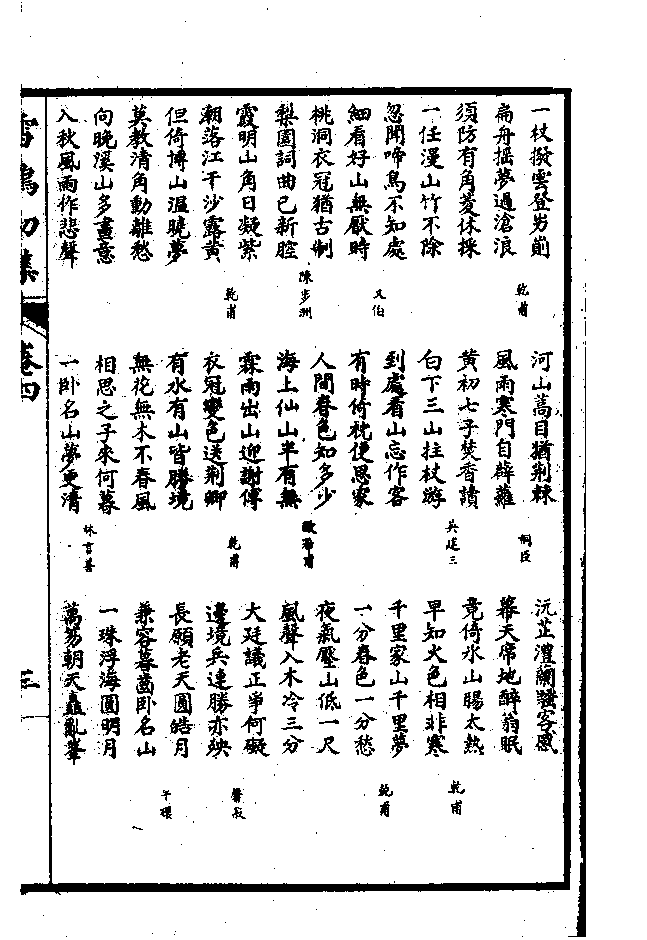 一杖撥雲登岃崱
扁舟摇夢過滄浪
乾甫
須防有角菱休採
一任漫山竹不除
忽聞啼鳥不知處
細看好山無厭時
又伯
桃洞衣冠猶古制
梨園詞曲已新腔
陳步洲
霞明山角日凝紫
潮落江干沙露黄
乾甫
但倚博山温曉夢
莫教清角動離愁
向晚溪山多畫意
入秋風雨作悲聲
河山蒿目猶荆棘
風雨寒門自薜蘿
桐臣
黄初七子焚香讀
白下三山拄杖游
吳廷三
到處看山忘作客
有時倚枕便思家
人間春色知多少
海上仙山半有無
霖雨出山迎謝傅
衣冠變色送荆卿
乾甫
有水有山皆勝境
無花無木不春風
相思之子來何暮
一卧名山夢更清
林言善
沅芷澧蘭騷客感
幕天席地醉翁眠
竟倚氷山腸太熱
早知火色相非寒
乾甫
千里家山千里夢
一分春色一分愁
乾甫
夜氣壓山低一尺
風聲入木冷三分
大廷議正爭何礙
邊境兵連勝亦殃
長願老天圓皓月
兼容暮齒卧名山
一珠浮海圓明月
萬笏朝天矗亂峯
卷四
三